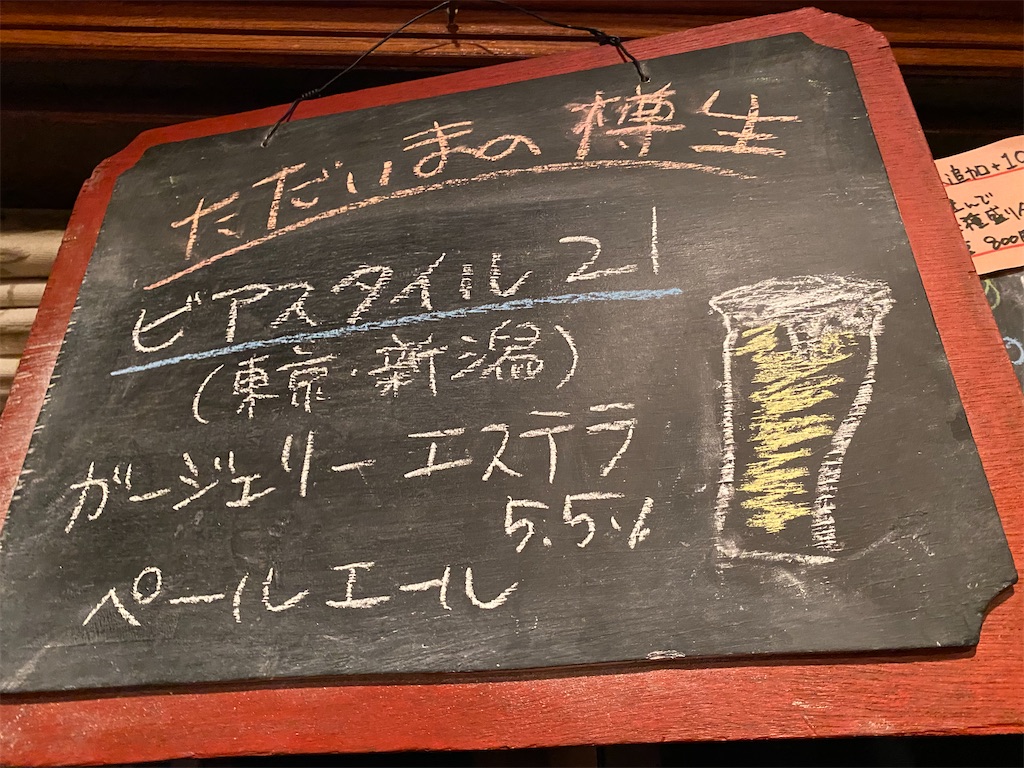 ただいまの樽生
ビアスタイル21
(東京・新潟)
ガージェリー エステラ
5.5%
ペールエール
追加+10
んで
種盛り
800円